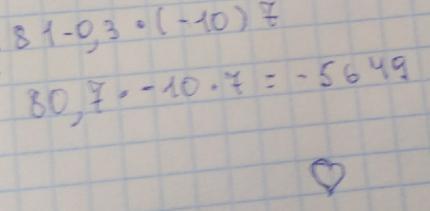 81-0,3·(-10)7
80,7·-10·7=-5649